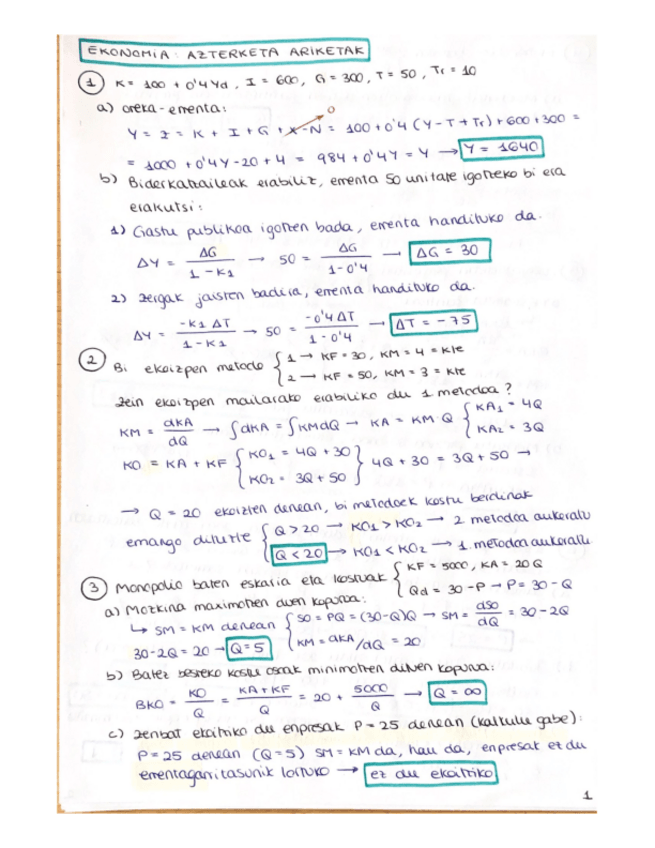 EKONOMIA: AZTERKETA ARIKETAK
1 K = 100 + 0'4 Yd, I = 600, G = 300, T = 50, Tr = 10
a) oreka-errenta:
Y = Z = K + I + G + X-N = 100 + 0'4 (Y - T + Tr) + 600 + 300 =
0
= 1000 + 0'4Y - 20 + 4 = 984 + 0'4Y = Y → Y = 1640
b) Biderkatzaileak erabiliz, errenta 50 unitate igotzeko bi era
erakutsi:
1) Gastu publikoa igotzen bada, errenta handituko da.
ΔY = ΔG / 1 - k1 → 50 = ΔG / 1 - 0'4 → ΔG = 30
2) Zergak jaisten badira, errenta handituko da.
ΔY = -k1 ΔT / 1 - k1 → 50 = -0'4 ΔT / 1 - 0'4 → ΔT = -75
2 Bi ekoizpen metodo { 1 → KF = 30, KM = 4 = kte
2 → KF = 50, KM = 3 = kte
Zein ekoizpen mailarako erabiliko du 1 metodoa?
KM = dKA / dQ → ∫dKA = ∫KMdQ → KA = KM·Q { KA1 = 4Q
KA2 = 3Q
KO = KA + KF { KO1 = 4Q + 30
KO2 = 3Q + 50 } 4Q + 30 = 3Q + 50 →
→ Q = 20 ekoizten denean, bi metodoek kostu berdinak
emango dituzte { Q > 20 → KO1 > KO2 → 2 metodoa aukeratu
Q < 20 → KO1 < KO2 → 1 metodoa aukeratu
3 Monopolio baten eskaria eta kostuak { KF = 5000, KA = 20Q
Qd = 30 - P → P = 30 - Q
a) Mozkina maximotzen duen kopurua:
↳ SM = KM denean { SO = PQ = (30-Q)Q → SM = dSO / dQ = 30 - 2Q
KM = dKA/dQ = 20
30 - 2Q = 20 → Q = 5
b) Batez besteko kostu osoak minimotzen dituen kopurua:
BKO = KO / Q = KA + KF / Q = 20 + 5000 / Q → Q = ∞
c) Zenbat ekoitziko du enpresak P = 25 denean (kalkulu gabe):
P = 25 denean (Q = 5) SM = KM da, hau da, enpresak ez du
errentagarritasunik lortuko → ez du ekoitziko
1